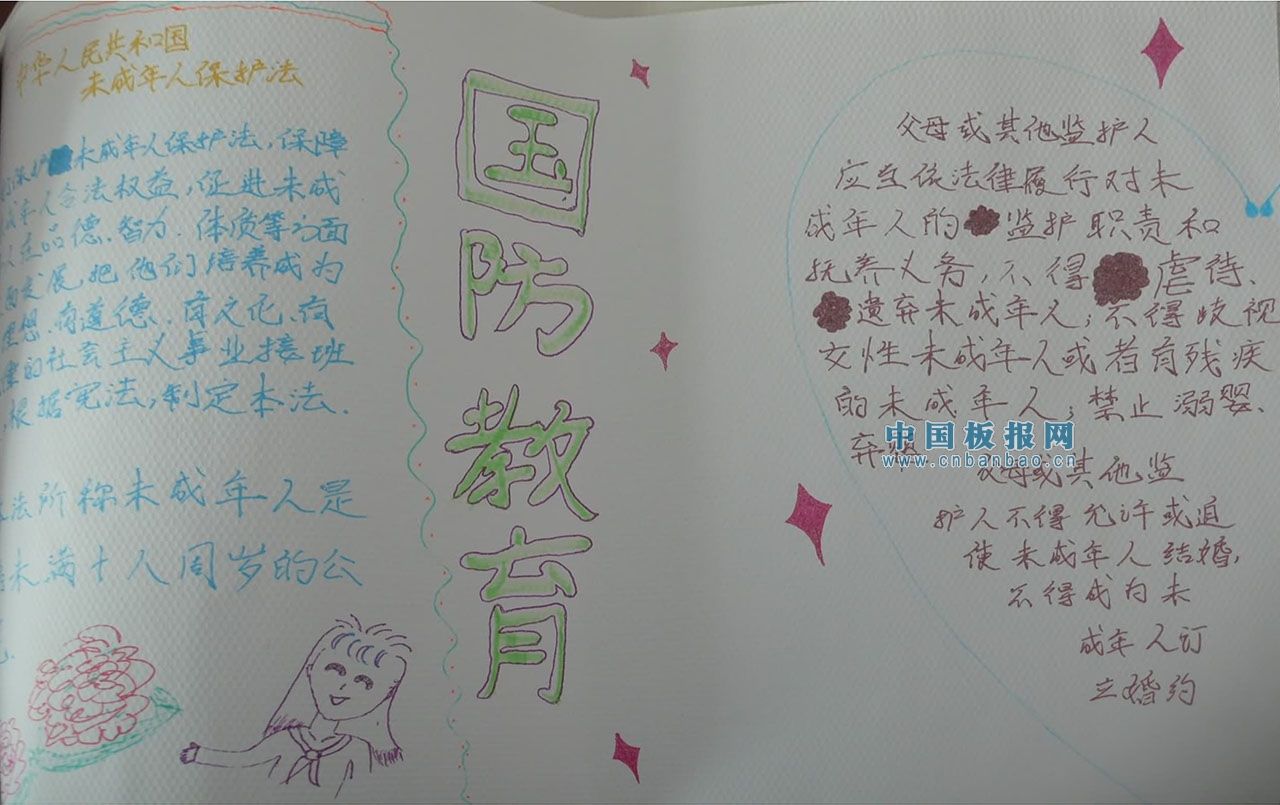 中华人民共和国
未成年人保护法
保护未成年人保护法,保障
成年人合法权益,促进未成
人在品德、智力、体质等方面
的发展,把他们培养成为
理想、有道德、有文化、有
律的社会主义事业接班
,根据宪法,制定本法.
法所称未成年人是
未满十八周岁的公
国防教育
父母或其他监护人
应当依法律履行对未
成年人的监护职责和
抚养义务,不得虐待、
遗弃未成年人;不得歧视
女性未成年人或者有残疾
的未成年人;禁止溺婴、
弃婴
中国板报网
www.cnbanbao.cn
父母或其他监
护人不得允许或迫
使未成年人结婚,
不得成为未
成年人订
立婚约